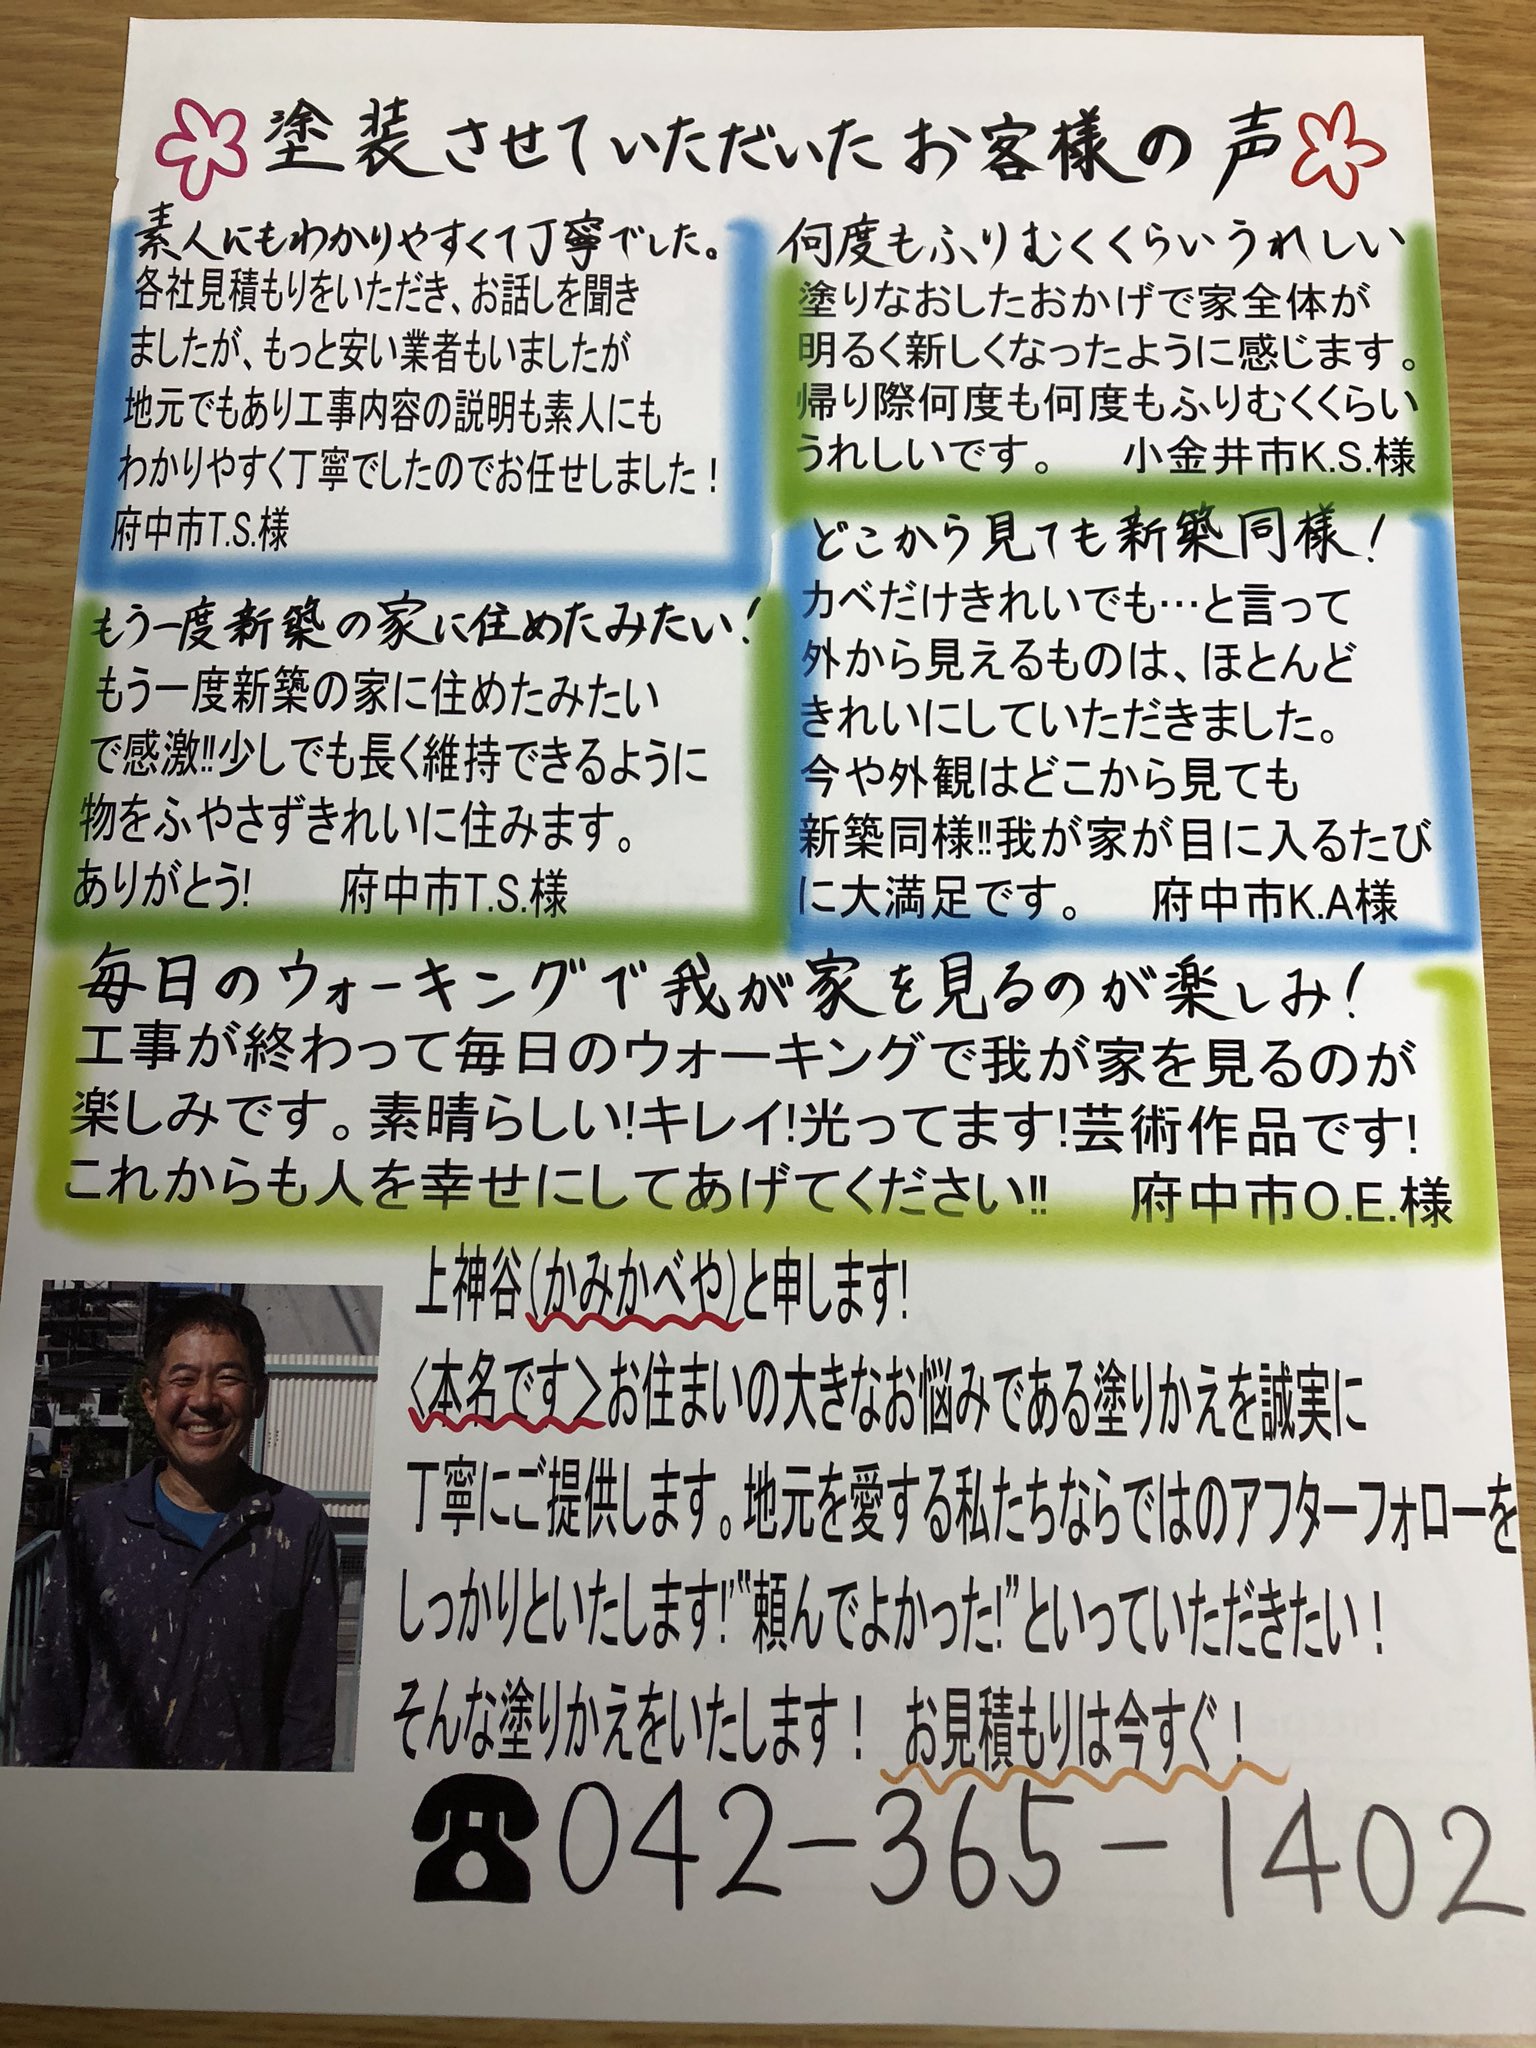 塗装させていただいたお客様の声
素人にもわかりやすくて丁寧でした。
各社見積もりをいただき、お話しを聞き
ましたが、もっと安い業者もいましたが
地元でもあり工事内容の説明も素人にも
わかりやすく丁寧でしたのでお任せしました！
府中市T.S.様
何度もふりむくくらいうれしい
塗りなおしたおかげで家全体が
明るく新しくなったように感じます。
帰り際何度も何度もふりむくくらい
うれしいです。 小金井市K.S.様
もう一度新築の家に住めたみたい！
もう一度新築の家に住めたみたい
で感激!!少しでも長く維持できるように
物をふやさずきれいに住みます。
ありがとう! 府中市T.S.様
どこから見ても新築同様！
カベだけきれいでも…と言って
外から見えるものは、ほとんど
きれいにしていただきました。
今や外観はどこから見ても
新築同様!!我が家が目に入るたび
に大満足です。 府中市K.A様
毎日のウォーキングで我が家を見るのが楽しみ！
工事が終わって毎日のウォーキングで我が家を見るのが
楽しみです。素晴らしい!キレイ!光ってます!芸術作品です!
これからも人を幸せにしてあげてください!! 府中市O.E.様
上神谷(かみかべや)と申します!
〈本名です〉お住まいの大きなお悩みである塗りかえを誠実に
丁寧にご提供します。地元を愛する私たちならではのアフターフォローを
しっかりといたします!’“頼んでよかった!”といっていただきたい！
そんな塗りかえをいたします！ お見積もりは今すぐ！
☎042-365-1402